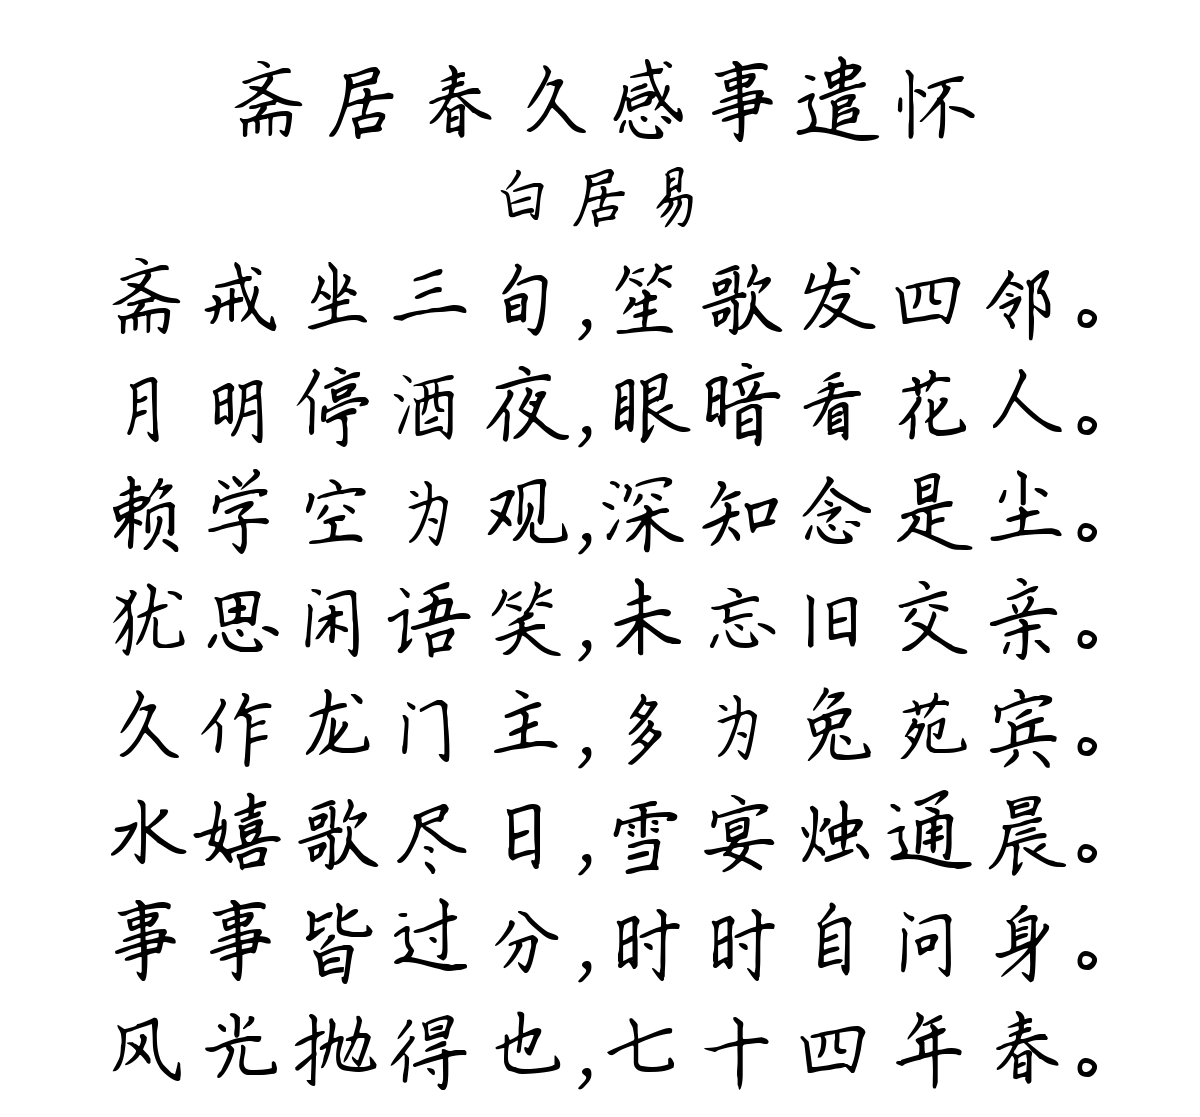 斋居春久感事遣怀
白居易
斋戒坐三旬,笙歌发四邻。
月明停酒夜,眼暗看花人。
赖学空为观,深知念是尘。
犹思闲语笑,未忘旧交亲。
久作龙门主,多为兔苑宾。
水嬉歌尽日,雪宴烛通晨。
事事皆过分,时时自问身。
风光抛得也,七十四年春。